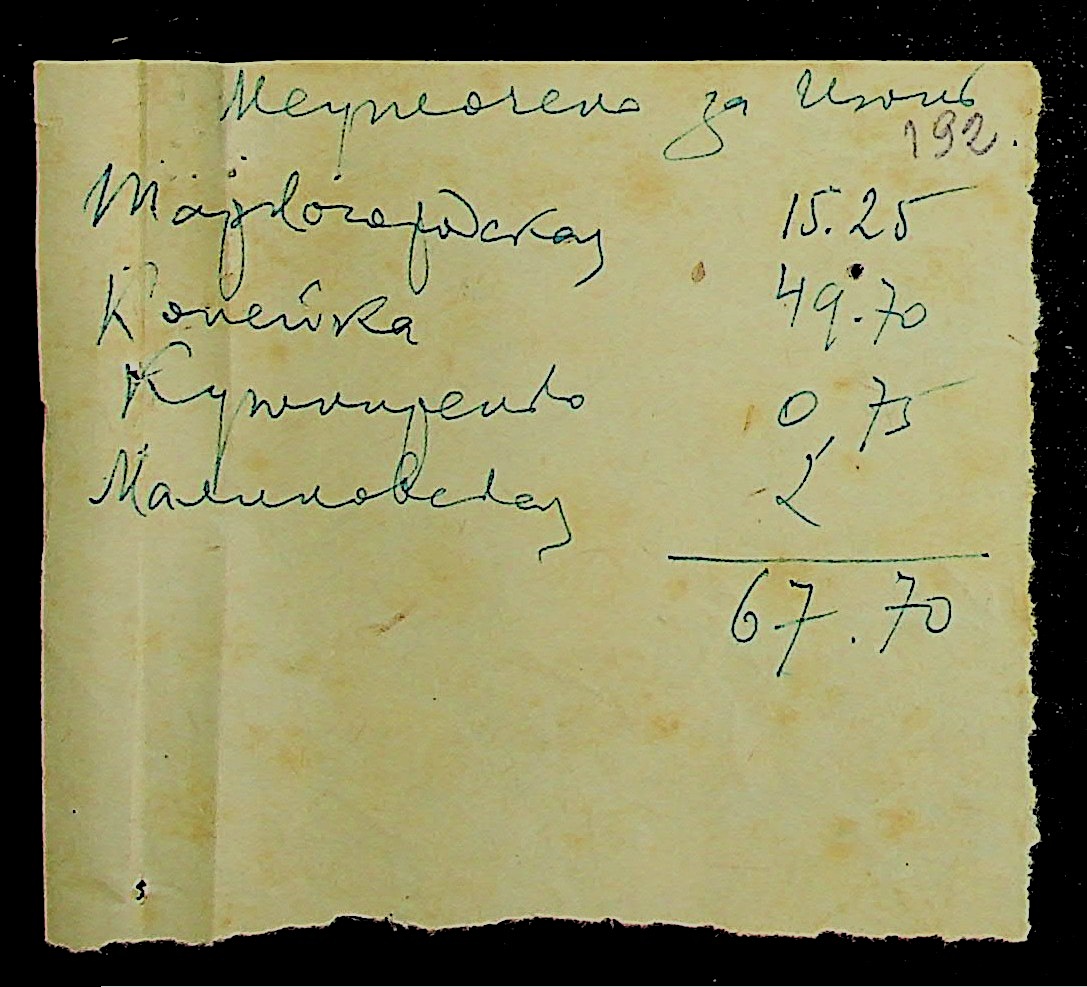 Неуплочено за Июнь
192.
15.25
Копейка 49.70
Кушниренко 0,75
Малиновская 2
67.70